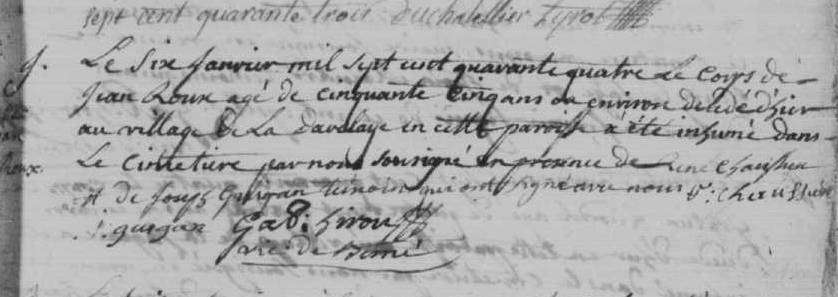 sept cent quarante trois Duchatellier Gyrot
Le six janvier mil sept cent quarante quatre le corps de
jean Roux agé de cinquante cinq ans ou environ decedé d'hier
au village de La en cette parroisse a été inhumé dans
Le cimetiere par nous sousigné en presence de rene
et de joseph guigan temoins qui ont signé avec nous
j. guigan Gab:
vic: de